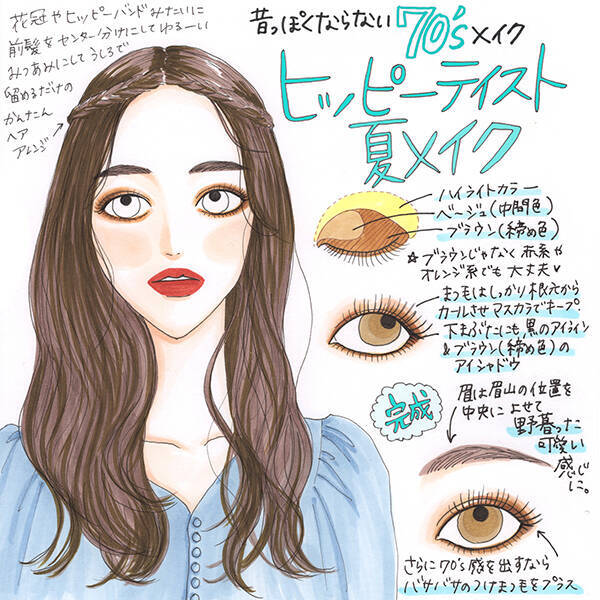 花冠やヒッピーバンドみたいに
前髪をセンター分けにしてゆるーい
みつあみにしてうしろで
留めるだけの
かんたん
ヘア
アレンジ
昔っぽくならない70'sメイク
ヒッピーテイスト
夏メイク
ハイライトカラー
ベージュ(中間色)
ブラウン(締め色)
☆ブラウンじゃなく赤系や
オレンジ系でも大丈夫♥
まつ毛はしっかり根元から
カールさせマスカラでキープ
下まぶたにも、黒のアイライン
&ブラウン(締め色)の
アイシャドウ
完成
眉は眉山の位置を
中央によせて
野暮った
可愛い
感じ
に。
さらに70's感を出すなら
バサバサのつけまつ毛をプラス